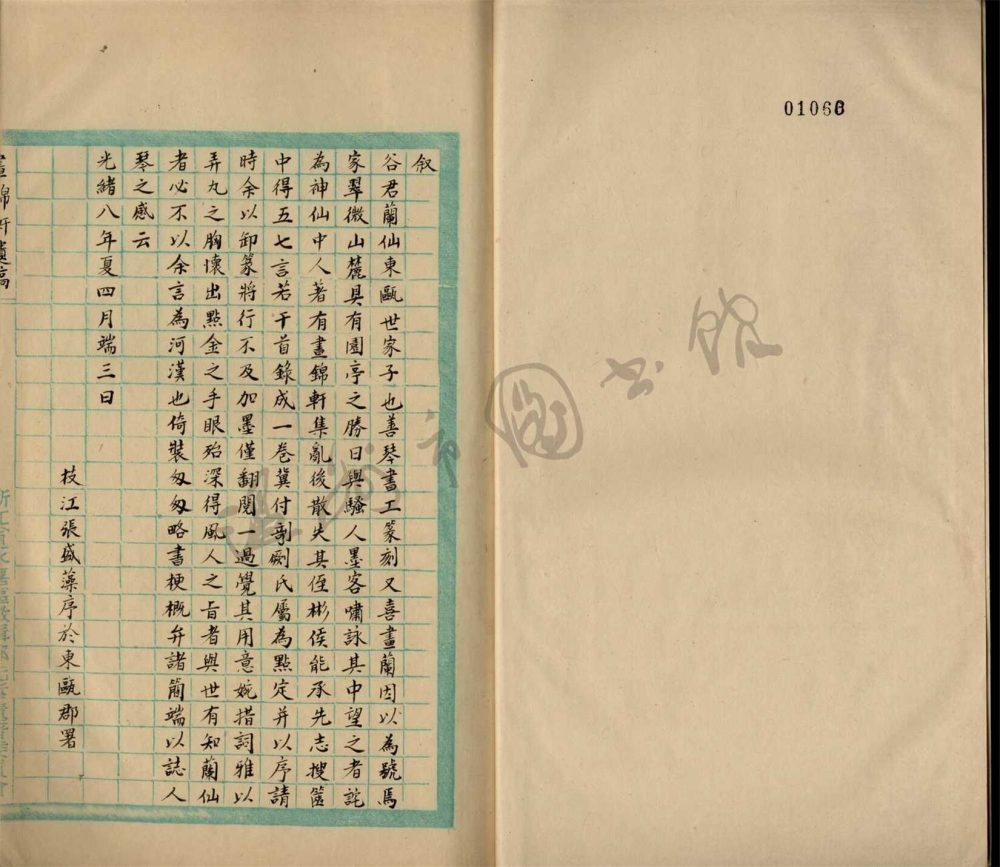 01063
叙
谷君蘭仙東甌世家子也善琴書工篆刻又喜畫蘭因以為號焉
家翠微山麓具有園亭之勝日與騷人墨客嘯詠其中望之者詫
為神仙中人著有晝錦軒集亂後散失其侄彬侯能承先志搜篋
中得五七言若干首錄成一卷冀付剞劂氏屬為點定并以序請
時余以卸篆將行不及加墨僅翻閱一過覺其用意婉措詞雅以
弄丸之胸懷出點金之手眼殆深得風人之旨者與世有知蘭仙
者必不以余言為河漢也倚裝匆匆略書梗概弁諸簡端以誌人
琴之感云
光緒八年夏四月端三日
枝江張盛藻序於東甌郡署
晝錦軒遺稿
圖書館